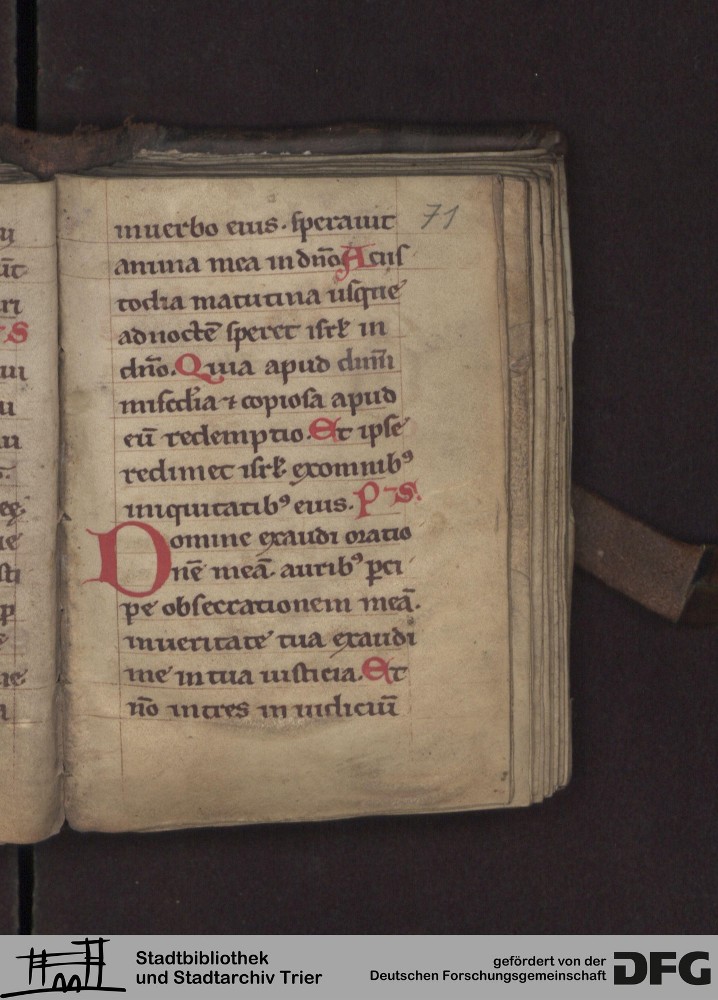 71
inuerbo eius. sperauit
anima mea in dño A cus
todia matutina usque
ad noctē speret isrl̄ in
dño. Quia apud dnm̄
misc̄dia ⁊ copiosa apud
eū redemptio. Et ipse
redimet isrl̄ exomnibꝰ
iniquitatibꝰ eius. P S.
Domine exaudi oratio
nē meā. auribꝰ ꝑci
pe obsecrationem meā.
inueritate tua exaudi
me in tua iusticia. Et
nō intres in iudiciū
Stadtbibliothek
und Stadtarchiv Trier
gefördert von der
Deutschen Forschungsgemeinschaft
DFG